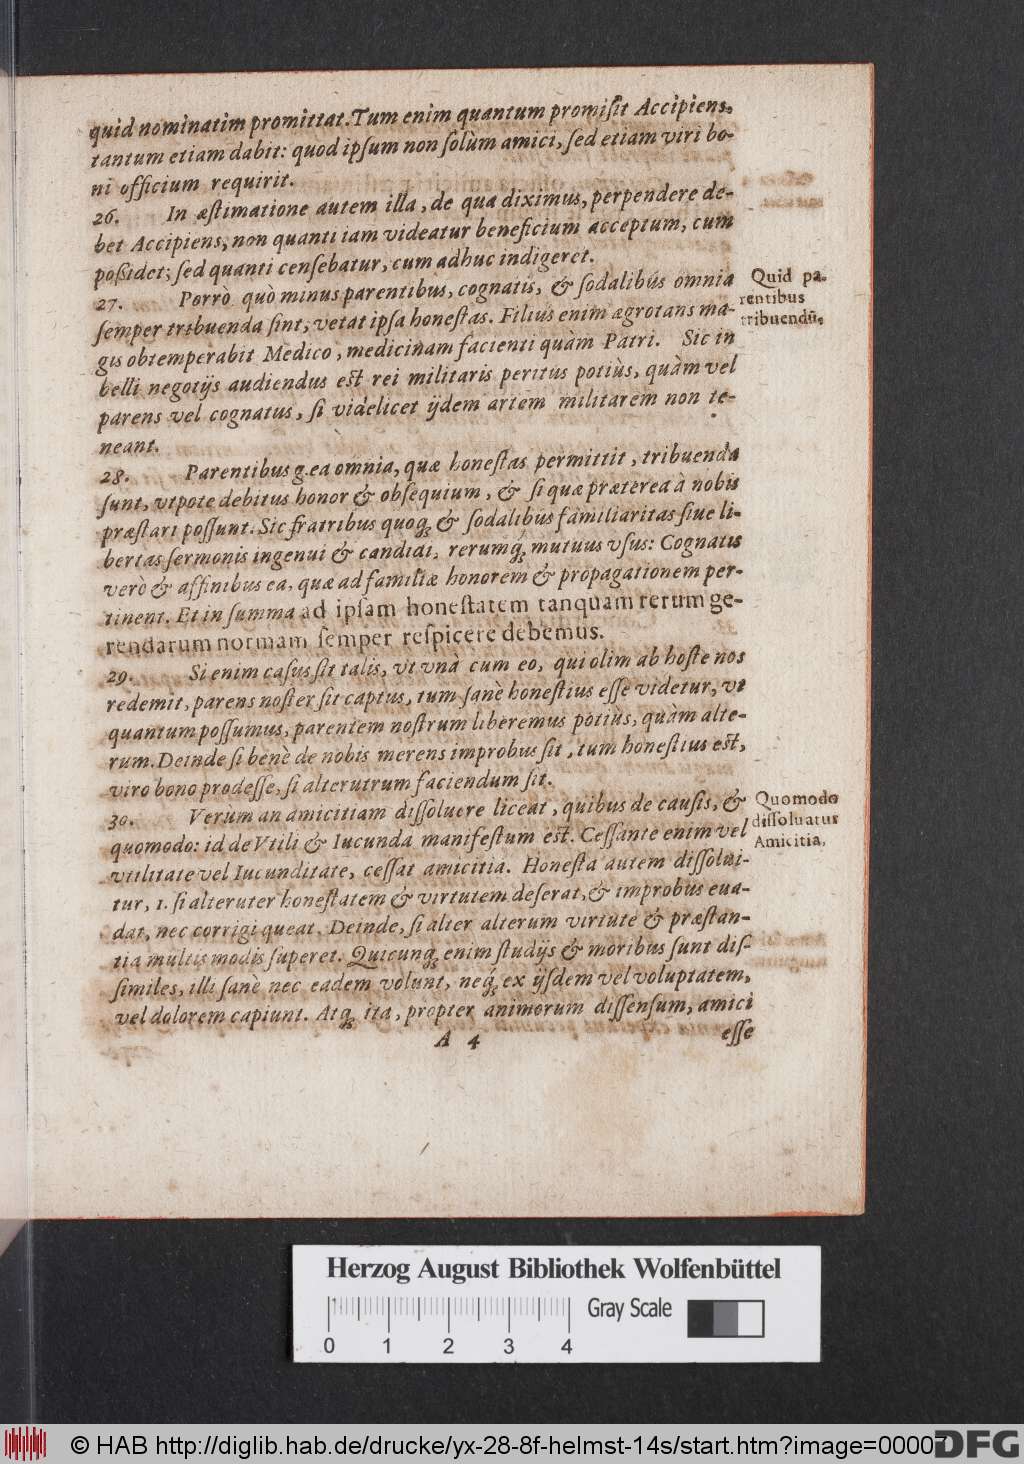 quid nominatim promittat. Tum enim quantum promiſit Accipiens,
tantum etiam dabit: quod ipſum non ſolùm amici, ſed etiam viri bo-
ni officium requirit.
26. In æſtimatione autem illa, de qua diximus, perpendere de-
bet Accipiens, non quanti iam videatur beneficium acceptum, cum
poßidet; ſed quanti cenſebatur, cum adhuc indigeret.
27. Porrò quò minus parentibus, cognatis, & ſodalibus omnia
ſemper tribuenda ſint, vetat ipſa honeſtas. Filius enim ægrotans ma-
gis obtemperabit Medico, medicinam facienti quàm Patri. Sic in
belli negotijs audiendus eſt rei militaris peritus potiùs, quàm vel
parens vel cognatus, ſi videlicet ijdem artem militarem non te-
neant.
Quid pa-
rentibus
tribuendū.
28. Parentibus g. ea omnia, quæ honeſtas permittit, tribuenda
ſunt, vtpote debitus honor & obſequium, & ſi quæ præterea à nobis
præſtari poſſunt. Sic fratribus quoqꝫ & ſodalibus familiaritas ſiue li-
bertas ſermonis ingenui & candidi, rerumqꝫ́ mutuus vſus: Cognatis
verò & affinibus ea, quæ ad familiæ honorem & propagationem per-
tinent. Et in ſumma ad ipſam honeſtatem tanquam rerum ge-
rendarum normam ſemper reſpicere debemus.
29. Si enim caſus ſit talis, vt vnà cum eo, qui olim ab hoſte nos
redemit, parens noſter ſit captus, tum ſanè honeſtius eſſe videtur, vt
quantum poſſumus, parentem noſtrum liberemus potiùs, quàm alte-
rum. Deinde ſi benè de nobis merens improbus ſit, tum honeſtius eſt,
viro bono prodeſſe, ſi alterutrum faciendum ſit.
30. Verùm an amicitiam diſſoluere liceat, quibus de cauſis, &
quomodo: id de Vtili & Iucunda manifeſtum eſt. Ceſſante enim vel
vtilitate vel Iucunditate, ceſſat amicitia. Honeſta autem diſſolui-
tur, 1. ſi alteruter honeſtatem & virtutem deſerat, & improbus eua-
dat, nec corrigi queat. Deinde, ſi alter alterum virtute & præſtan-
tia multis modis ſuperet. Quicunqꝫ enim ſtudijs & moribus ſunt diſ-
ſimiles, illi ſanè nec eadem volunt, neqꝫ́ ex ijſdem vel voluptatem,
vel dolorem capiunt. Atqꝫ ita, propter animorum diſſenſum, amici
Quomodo
diſſoluatur
Amicitia.
A 4 eſſe
Herzog August Bibliothek Wolfenbüttel
0 1 2 3 4 Gray Scale
© HAB http://diglib.hab.de/drucke/yx-28-8f-helmst-14s/start.htm?image=00007
DFG